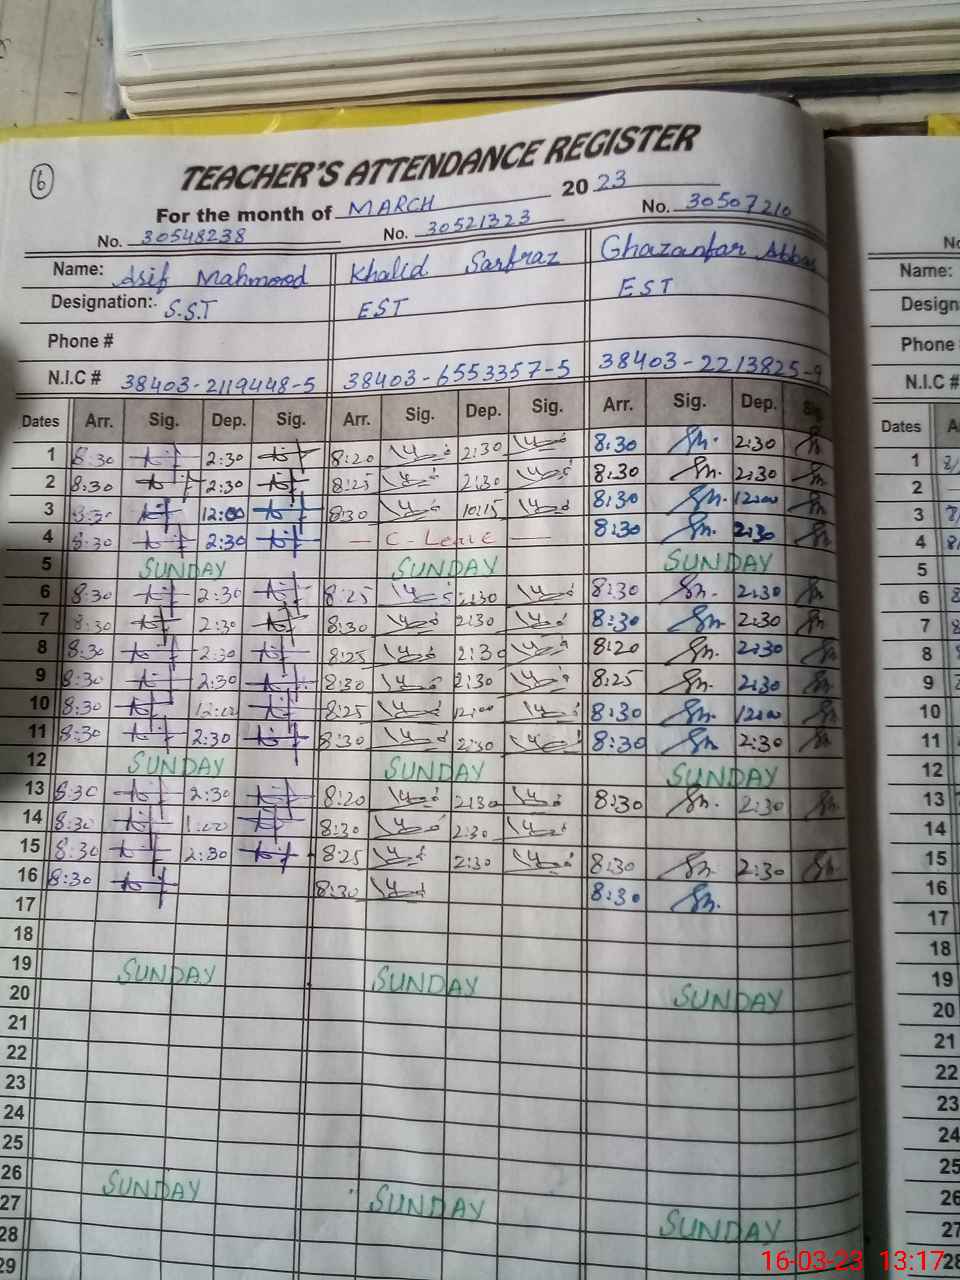 6
TEACHER'S ATTENDANCE REGISTER
For the month of MARCH 2023
No. 30548238 No. 30521323 No. 30507210
Name: Asif Mahmood Khalid Sarfraz Ghazanfar Abbas
Designation:- S.S.T EST EST
Phone #
N.I.C # 38403-2119448-5 38403-6553357-5 38403-2213825-9
Dates Arr. Sig. Dep. Sig. Arr. Sig. Dep. Sig. Arr. Sig. Dep. Sig.
1 8:30 2:30 8:20 2:30 8:30 2:30
2 8:30 2:30 8:25 2:30 8:30 2:30
3 8:30 12:00 8:30 10:15 8:30 12:00
4 8:30 2:30 — C-Leave — 8:30 2:30
5 SUNDAY SUNDAY SUNDAY
6 8:30 2:30 8:25 2:30 8:30 2:30
7 8:30 2:30 8:30 2:30 8:30 2:30
8 8:30 2:30 8:25 2:30 8:20 2:30
9 8:30 2:30 8:30 2:30 8:25 2:30
10 8:30 12:00 8:25 12:00 8:30 12:00
11 8:30 2:30 8:30 2:30 8:30 2:30
12 SUNDAY SUNDAY SUNDAY
13 8:30 2:30 8:20 2:30 8:30 2:30
14 8:30 1:00 8:30 2:30
15 8:30 2:30 8:25 2:30 8:30 2:30
16 8:30 8:30 8:30
17
18
19 SUNDAY SUNDAY SUNDAY
20
21
22
23
24
25
26 SUNDAY SUNDAY SUNDAY
27
28
29
Name:
Phone
N.I.C #
Dates
1
2
3
4
5
6
7
8
9
10
11
12
13
14
15
16
17
18
19
20
21
22
23
24
25
26
27
28
16-03-23 13:17